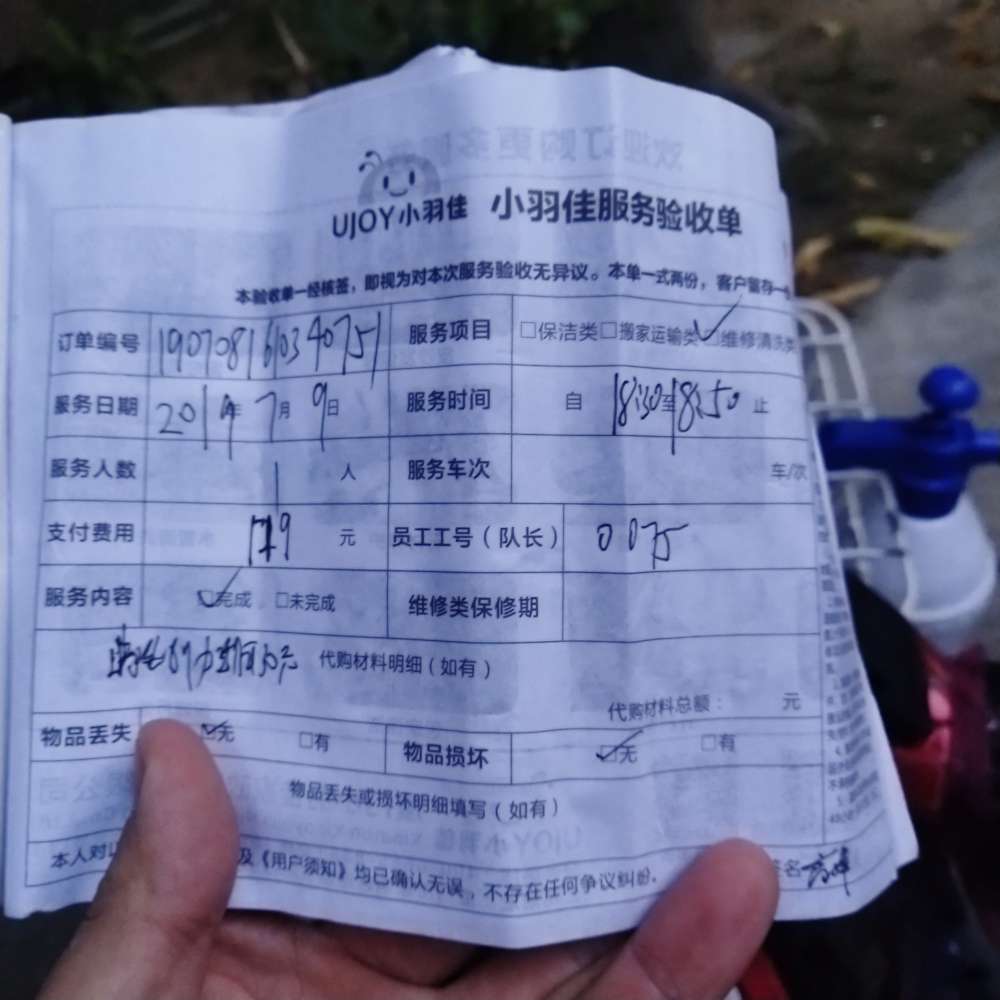 UJOY小羽佳 小羽佳服务验收单
本验收单一经核签,即视为对本次服务验收无异议。本单一式两份,客户留存一
订单编号 1907081610340751 服务项目 □保洁类□搬家运输类□维修清洗类
服务日期 2019年7月9日 服务时间 自 18:30至18:50 止
服务人数 1 人 服务车次 车/次
支付费用 179 元 员工工号(队长) 0075
服务内容 □完成 □未完成 维修类保修期
代购材料明细(如有)
代购材料总额: 元
物品丢失 □无 □有 物品损坏 □无 □有
物品丢失或损坏明细填写(如有)
本人对 及《用户须知》均已确认无误,不存在任何争议纠纷. 签名